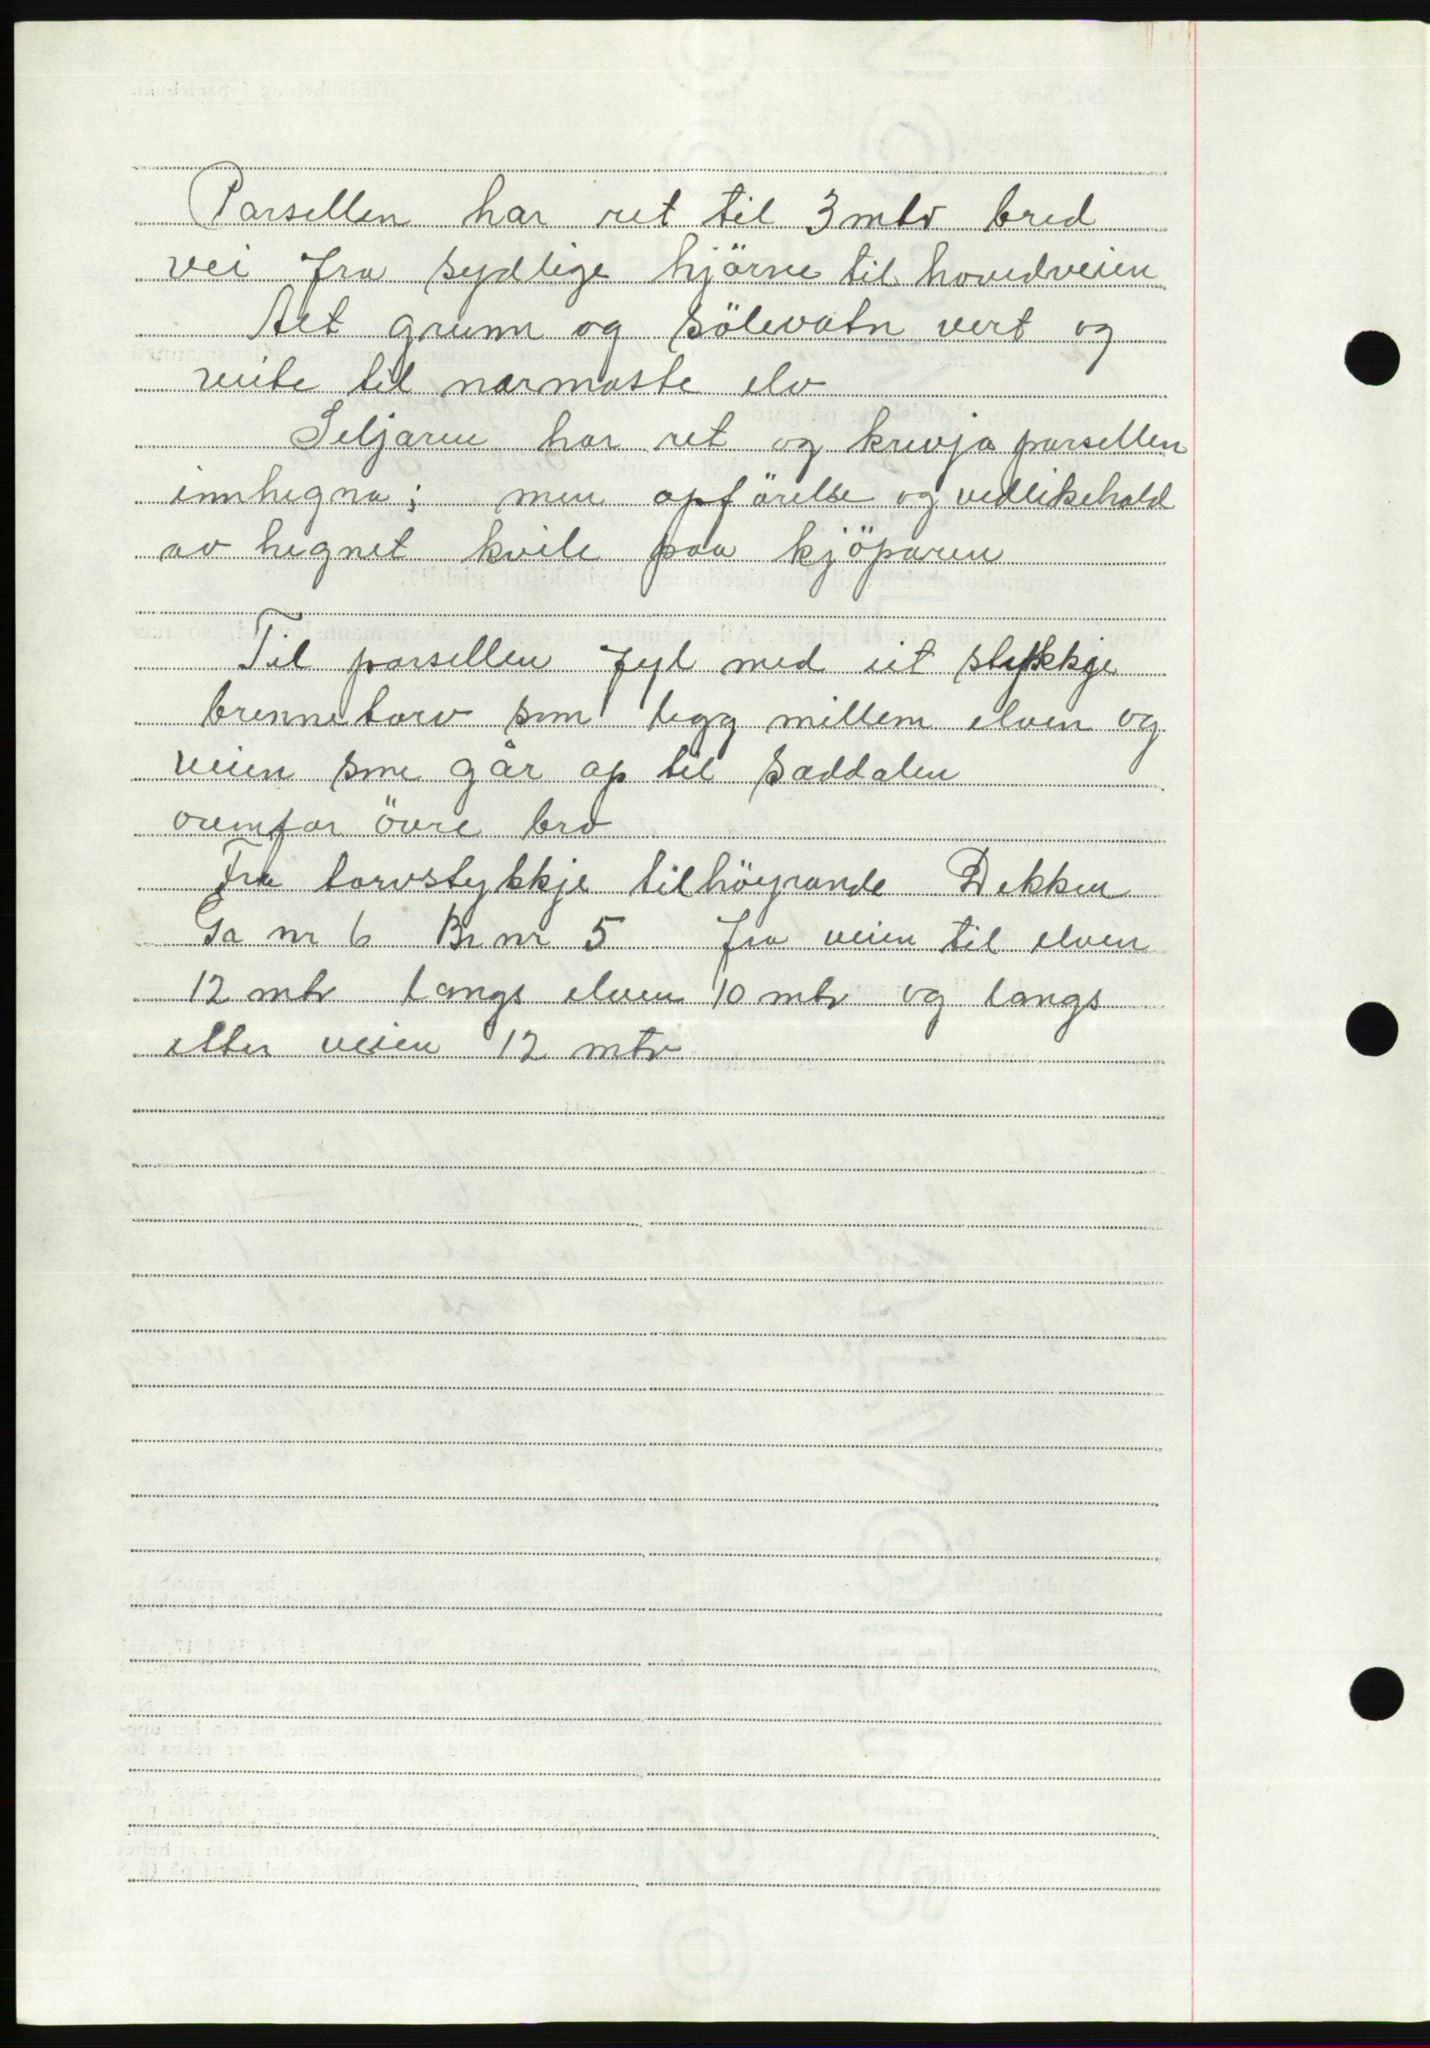 Parsellen har ret til 3 mtr bred
vei fra sydlige hjörne til hovedveien
Alt grunn og sölevatn vert og
veite til nærmaste elv
Seljaren har ret og krevja parsellen
innhegna; men opförelse og vedlikehold
av hegnet kvile paa kjöparen
Til parsellen fyl med eit stykkje
brennetorv som legg millem elven og
veien sme går op til Sæddalen
ovenfor övre bro
Fra torvstykkje tilhöyrande Dekken
Ga nr 6 Br nr 5 fra veien til elven
12 mtr langs elven 10 mtr og langs
etter veien 12 mtr